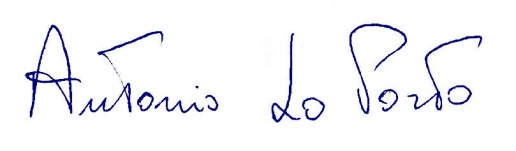 Antonio Lo Porto